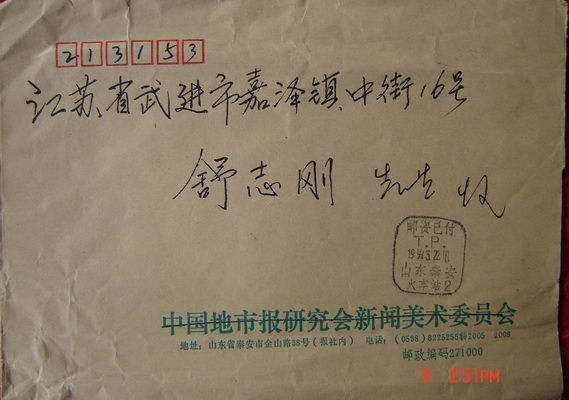 213153
江苏省武进市嘉泽镇中街16号
舒志刚 先生 收
邮资已付
T.P.
山东泰安
火车站2
中国地市报研究会新闻美术委员会
地址：山东省泰安市金山路38号（报社内） 电话：（0538）8225255转2005 2003
邮政编码271000
6 2:51PM